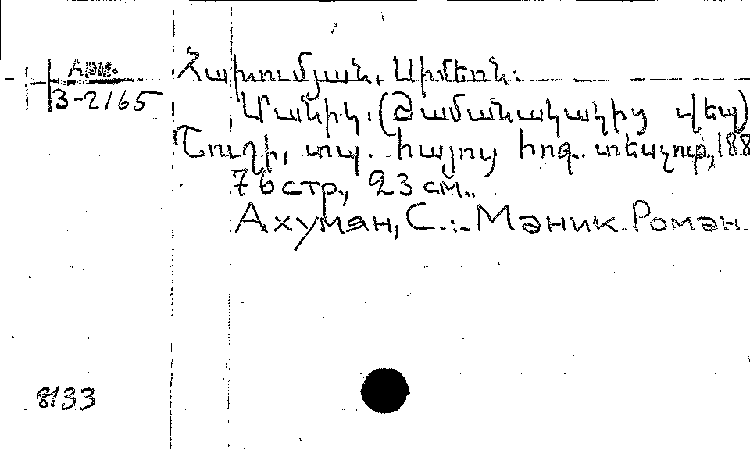 Арм.
3-2165
Հախումյան, Սիմեոն:
Մանիկ: (Ժամանակակից վեպ)
Շուշի, տպ. հայոց հոգ. տեսչութ., 188
76 стр., 23 см.
Ахумян, С.:- Маник. Роман.
8133